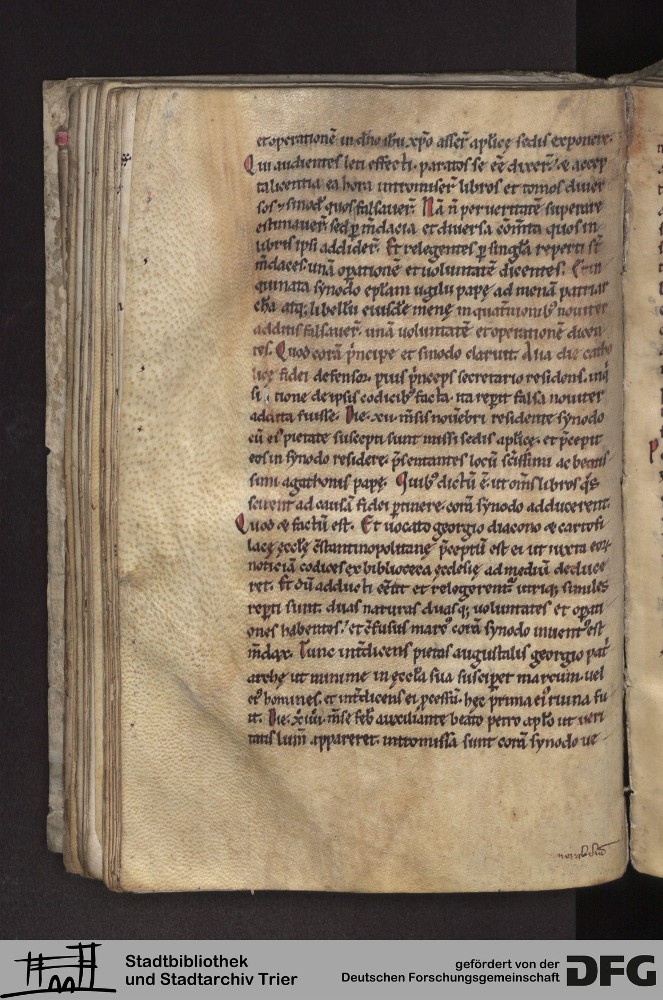 et operationē in dn̄o ihū xp̄o asser̄ ap̄licę sedis exponere.
Qui audientes leti effecti. paratos se eē dixer̄. & accep
ta licentia ea hora intromiser̄ libros et tomos diuer
sos & sinod quos falsauer̄. Nā n̄ per ueritatē superare
estimauer̄ sed p̄ m̄dacia et diuersa cōm̄ta quos in
libris ipsi addider̄. Et relegentes p̄ singl̄a reperti st̄
m̄daces. unā op̄ationē et uoluntatē dicentes. Et in
quinata synodo ep̄lam uigilii papę ad menā patriar
chā atq; libellū eiusdē menę in quat̄nionib; nouiter
additis falsauer̄. unā uoluntatē et operationē dicen
tes. Quod corā p̄ncipe et sinodo claruit. Alia die catho
licę fidei defensor. pius p̄nceps secretario residens. inq
si tione de ipsis codicib; facta. ita rep̄it falsa nouiter
addita fuisse. Die. xii. m̄sis nouēbri residente synodo
cū eis pietate suscepti sunt missi sedis ap̄licę. et p̄cepit
eos in synodo residere. p̄sentantes locū sc̄issimi ac beatis
simi agathonis papę. Quib; dictū ē. ut om̄s libros q̄s
scirent ad causā fidei p̄tinere. corā synodo adducerent.
Quod & factū est. Et uocato georgio diacono & cartofi
lacę ęcclę c̄stantinopolitanę p̄ceptū est ei ut iuxta eoꝝ
noticiā codices ex biblioteca ęcclesię ad mediū deduce
ret. Et dū adducti eēnt et relegerent̄ utriq; similes
rep̄ti sunt. duas naturas duasq; uoluntates et op̄ati
ones habentes. et c̄fusus corā synodo inuent; est
m̄dax. Tunc int̄dicens pietas augustalis georgio pat̄
archę ut minime in ęccl̄a sua suscip̄et marcum. uel
ei; homines. et int̄dicens ei p̄cessū. hęc p̄rima ei; ruina fu
it. Die. xiiii. m̄se feb̄ auxiliante beato petro ap̄lo ut ueri
tatis lum̄ appareret. intromissa sunt corā synodo ue
Stadtbibliothek
und Stadtarchiv Trier
gefördert von der
Deutschen Forschungsgemeinschaft
DFG